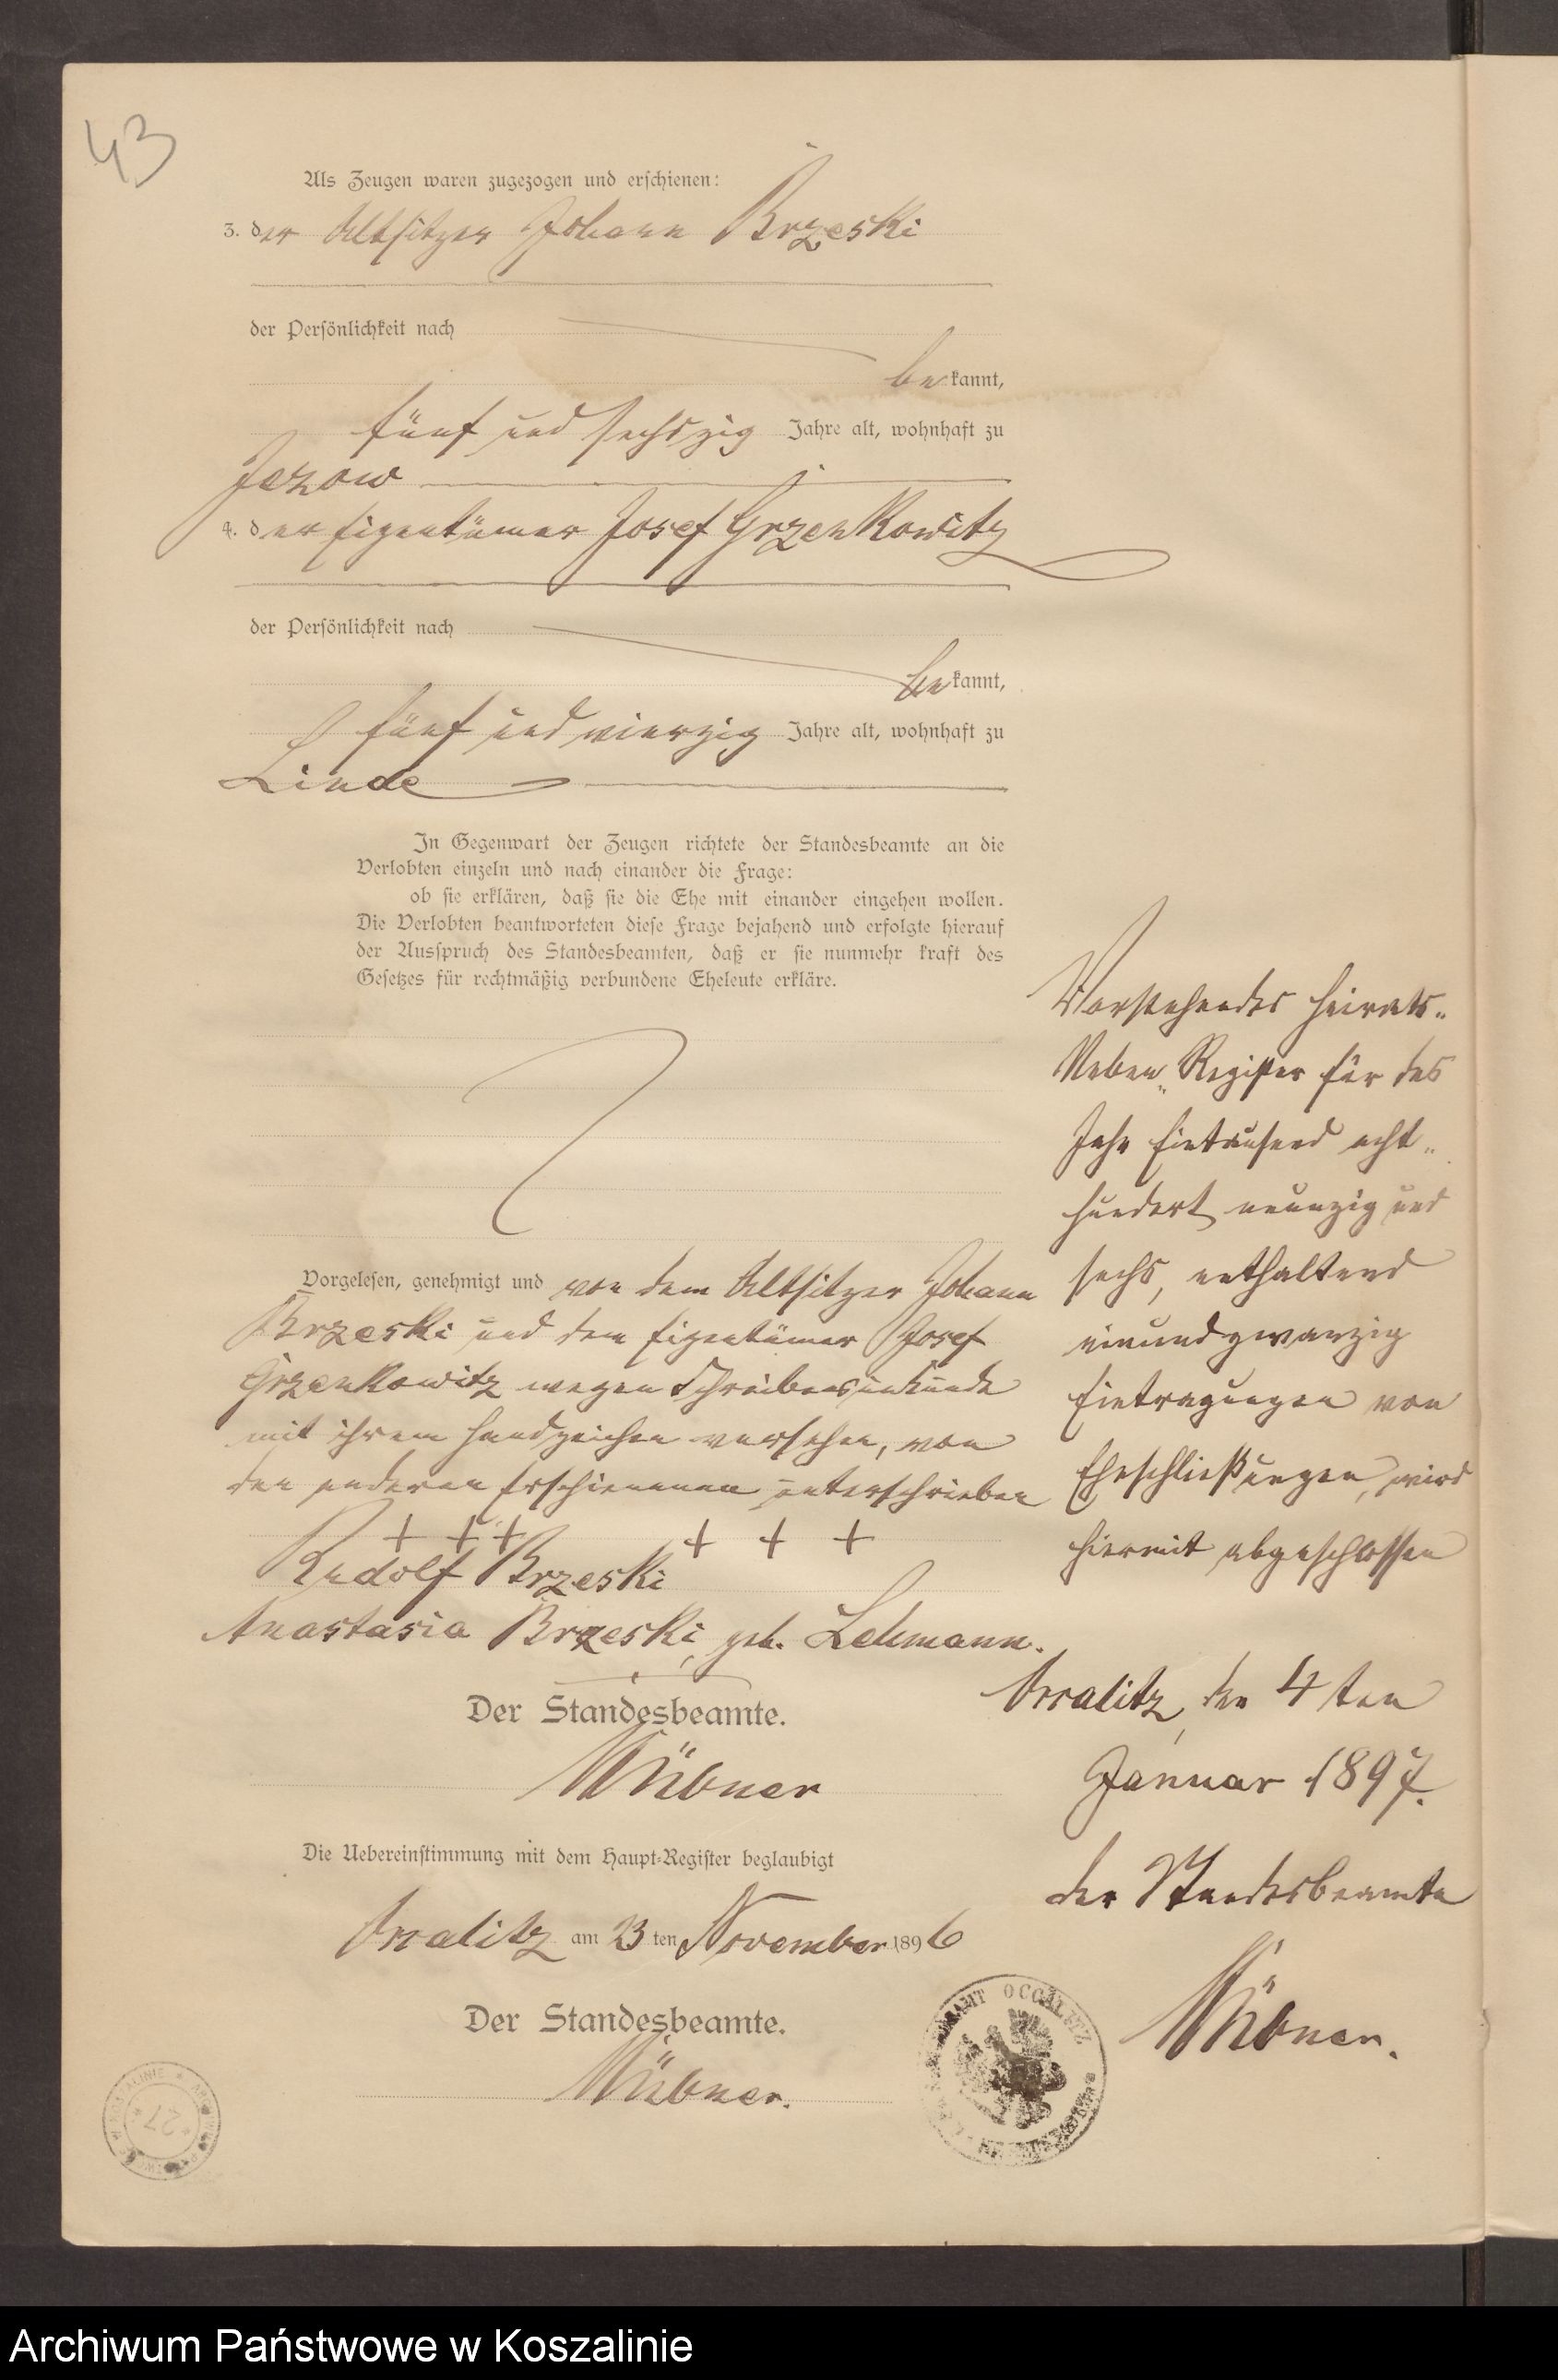 43
Als Zeugen waren zugezogen und erschienen:
3. der Altsitzer Johann Brzeski
der Persönlichkeit nach
be kannt,
fünf und sechszig Jahre alt, wohnhaft zu
Jezow
4. der Eigentümer Josef Grzenkowitz
der Persönlichkeit nach
be kannt,
fünf und vierzig Jahre alt, wohnhaft zu
Linde
In Gegenwart der Zeugen richtete der Standesbeamte an die
Verlobten einzeln und nach einander die Frage:
ob sie erklären, daß sie die Ehe mit einander eingehen wollen.
Die Verlobten beantworteten diese Frage bejahend und erfolgte hierauf
der Ausspruch des Standesbeamten, daß er sie nunmehr kraft des
Gesetzes für rechtmäßig verbundene Eheleute erkläre.
Vorgelesen, genehmigt und von dem Altsitzer Johann
Brzeski und dem Eigentümer Josef
Grzenkowitz wegen Schreibensunkunde
mit ihrem Handzeichen versehen, von
den anderen Erschienenen unterschrieben
+ + + + + +
Rudolf Brzeski
Anastasia Brzeski, geb. Lehmann.
Der Standesbeamte.
Wübner
Die Uebereinstimmung mit dem Haupt-Register beglaubigt
Occalitz am 23 ten November 1896
Der Standesbeamte.
Wübner.
Vorstehendes Heirats-
Neben-Register für das
Jahr Eintausend acht-
hundert neunzig und
sechs, enthaltend
einundzwanzig
Eintragungen von
Eheschließungen, wird
hiermit abgeschlossen
Occalitz, den 4ten
Januar 1897.
der Standesbeamte
Wübner.
OCCALITZ
27
Archiwum Państwowe w Koszalinie